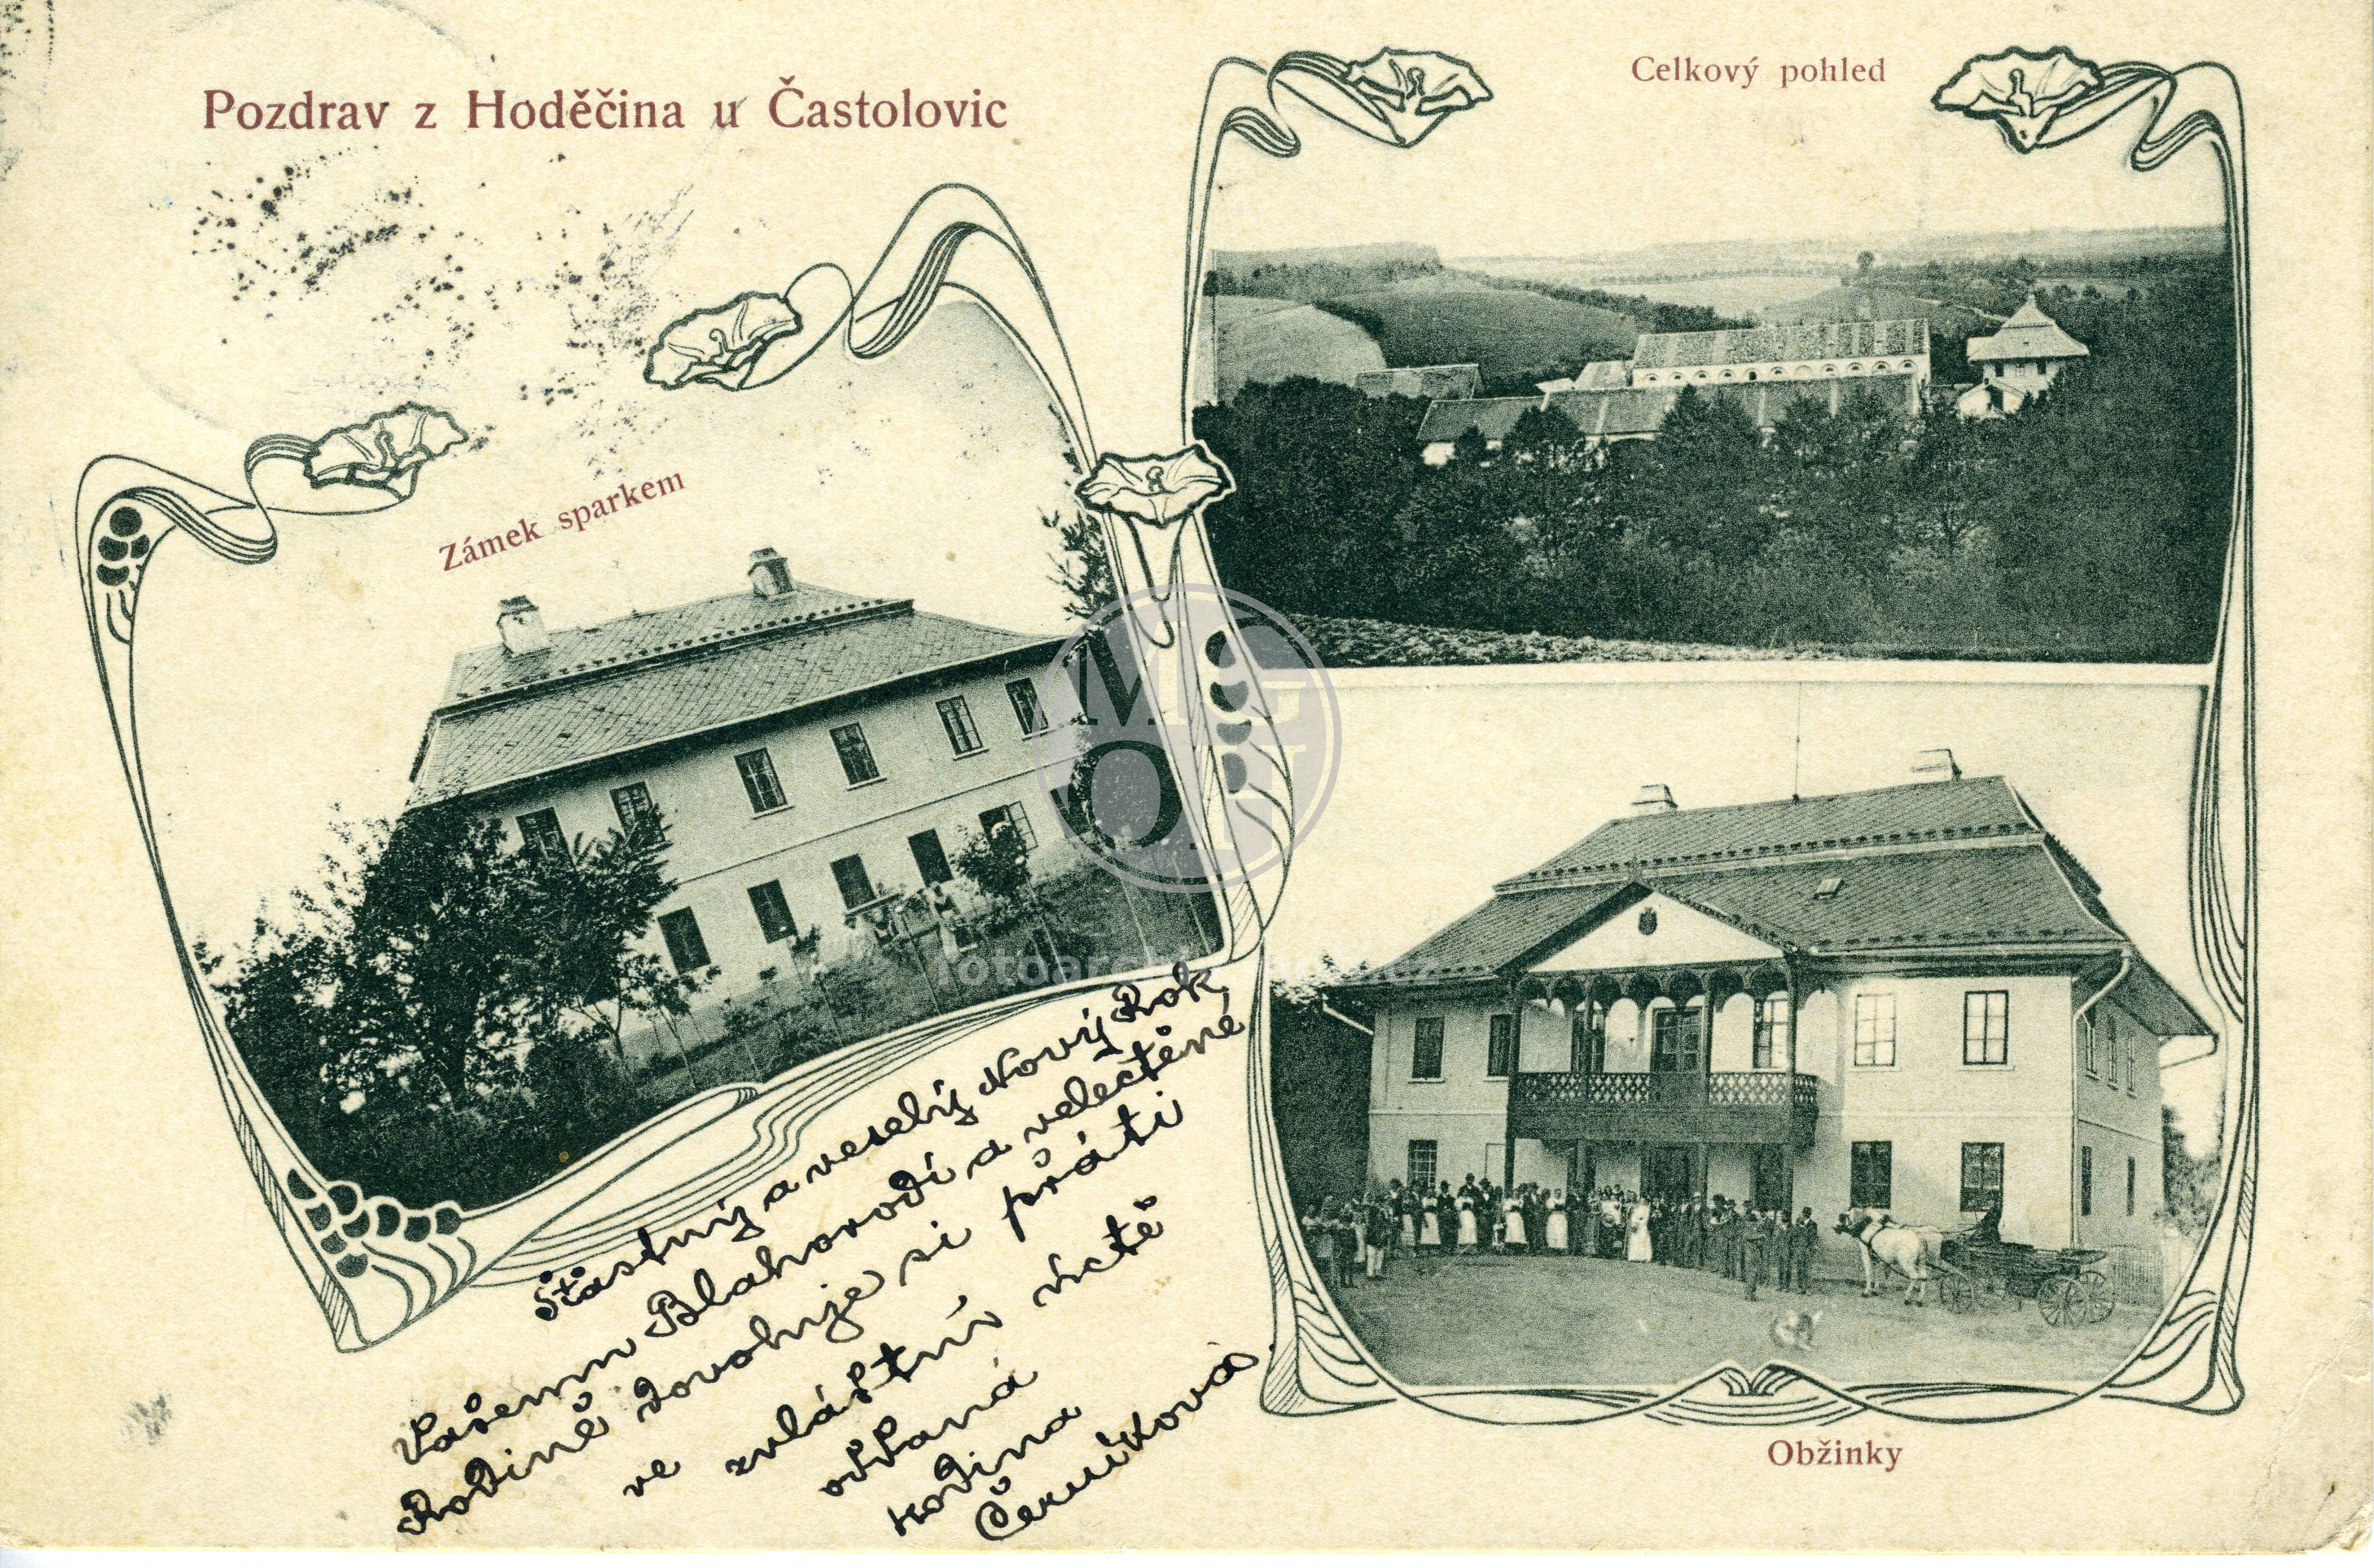 Pozdrav z Hoděčina u Častolovic
Celkový pohled
Zámek sparkem
Šťastný a veselý Nový Rok
Vašemu Blahorodí a velectěné
Rodině dovoluje si přáti
ve zvláštní úctě
oddaná
rodina
Černíková.
Obžinky